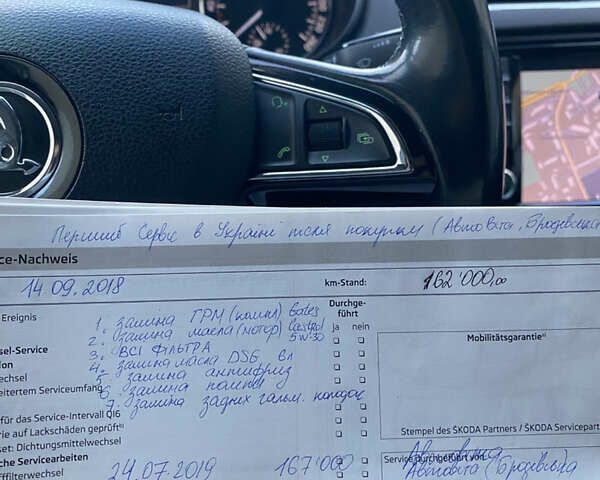 Перший Сервіс в Україні після покупки (АвтоВита, Бродівська
ce-Nachweis
14.09.2018
km-Stand: 162'000,00
Ereignis
Durchge-
führt
ja nein
1. Заміна ГРМ (комп) Gates
2. Заміна масла (мотор) Castrol 5W-30
3. ВСІ ФІЛЬТРА
4. Заміна масла DSG,
5. Заміна антифриз
6. Заміна помпи
7. Заміна задніх гальм. колодок
Mobilitätsgarantie
sel-Service
ion
wechsel
eitertem Serviceumfang
für das Service-Intervall QI6
rie auf Lackschäden geprüft
set: Dichtungsmittelwechsel
Stempel des ŠKODA Partners / ŠKODA Servicepart
che Servicearbeiten
ffilterwechsel
24.07.2019
167'000
Service durchgeführt von:
Автовита (Бродівська